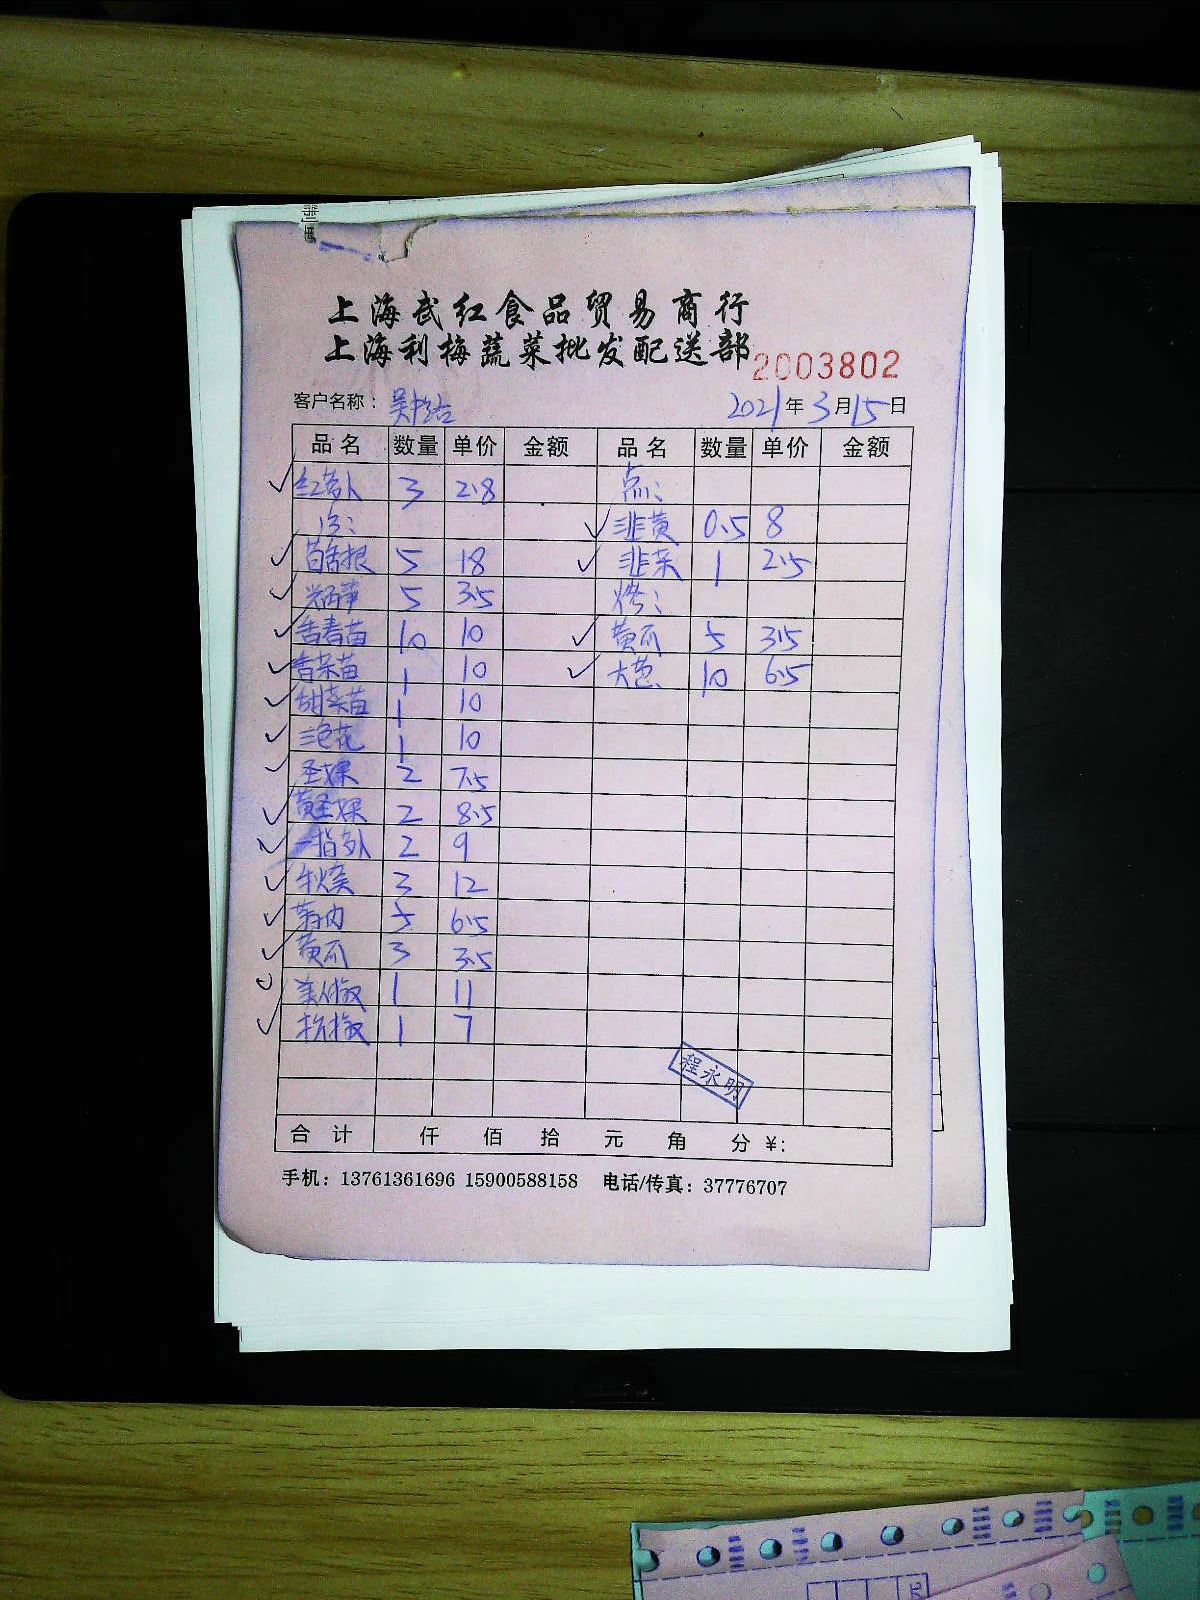 上海武红食品贸易商行
上海利梅蔬菜批发配送部
2003802
客户名称： 2021年3月15日
品名 数量 单价 金额 品名 数量 单价 金额
红萝卜 3 2.8 点：
韭黄 0.5 8
5 18 韭菜 1 2.5
5 3.5 烤：
10 10 黄瓜 5 3.5
香菜苗 1 10 大葱 10 6.5
甜菜苗 1 10
三色花 1 10
圣女果 2 7.5
黄圣女果 2 8.5
手指萝卜 2 9
3 12
5 6.5
黄瓜 3 3.5
美人椒 1 11
杭椒 1 7
程永明
合计 仟 佰 拾 元 角 分 ¥:
手机：13761361696 15900588158 电话/传真：37776707